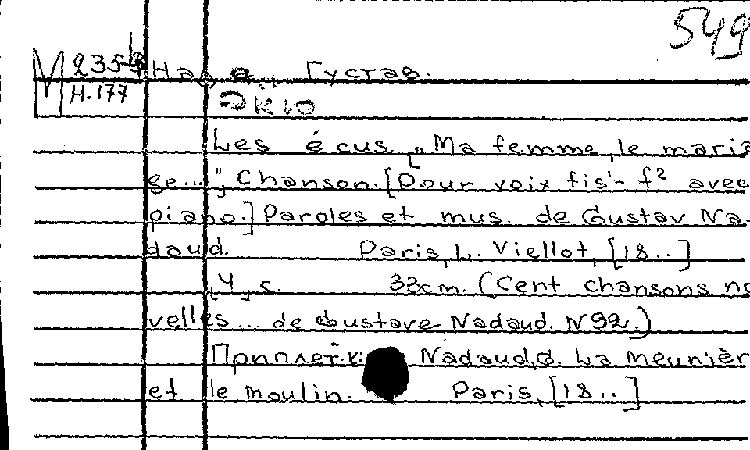 549
М 2354 Надо, Густав.
Н.177 Экю
Les écus. ["Ma femme, le maria
ge..."] Chanson. [Pour voix fis¹- f² avec
piano.] Paroles et mus. de Gustav Na-
daud. Paris, L. Viellot, [18..]
[4] с. 33cm. (Cent chansons no
velles... de Gustave Nadaud. N 92.)
Приплет.к: Nadaud, G. La meunièr
et le moulin. Paris, [18..]